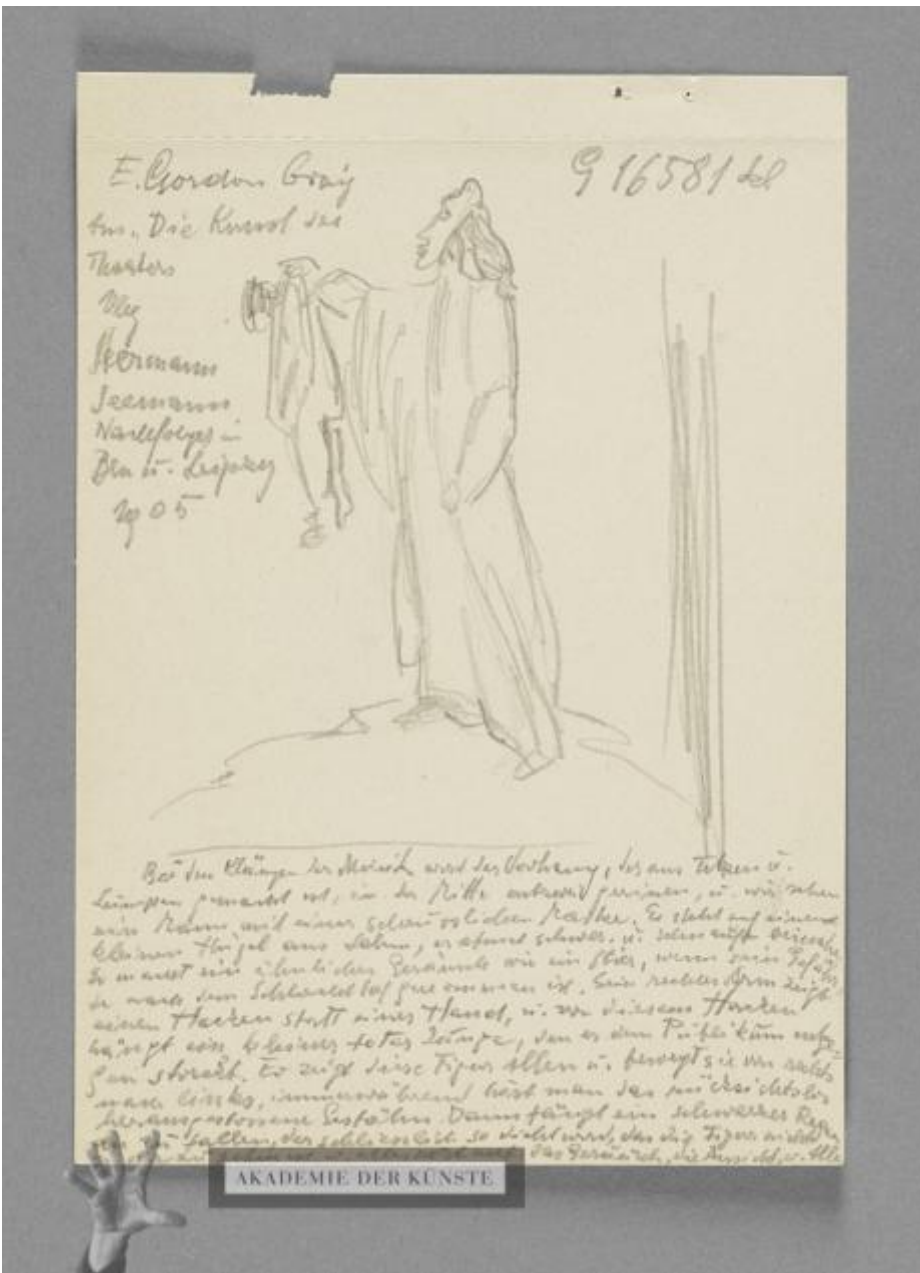 E. Gordon Craig
Aus. Die Kunst des
Theaters
Vlg
Hermann
Seemann
Nachfolger in
Bln u. Leipzig
1905
G 16581
Bei den Klängen der Musik wird der Vorhang, der aus Fetzen u.
Lumpen gemacht ist, in der Mitte entzwei gerissen, u. wir sehen
einen Mann mit einer scheusslichen Maske. Er steht auf einem
kleinen Hügel aus Lehm, er atmet schwer u.
Er macht ein ähnliches Geräusch wie ein Stier, wenn sein
er nach dem Schlachthof genommen ist. Sein rechter Arm zeigt
einen Hacken statt einer Hand, u. von diesem Hacken
hängt ein kleiner toter Junge, den er dem Publikum entge-
gen streckt. Er zeigt diese Figur Allen u. bewegt sie von rechts
nach links, immerwährend hört man das rücksichtslos
herausgestossene Gestöhn. Dann fängt ein schwacher Regen
zu fallen, der schliesslich so dicht wird, das die Figur nicht
das Geräusch, die Aussicht, u. Alle
AKADEMIE DER KÜNSTE